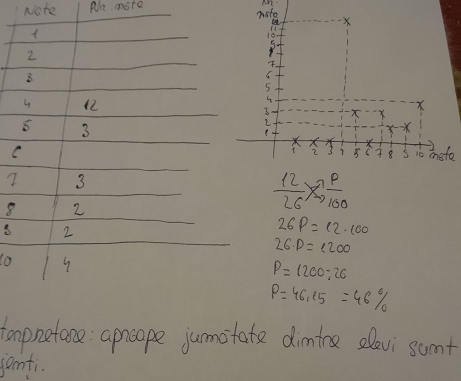 Note Nr. note
1
2
3
4 12
5 3
6
7 3
8 2
9 2
10 4
Nr.
note
12
11
10
9
8
7
6
5
4
3
2
1
1 2 3 4 5 6 7 8 9 10 note
12/26 P/100
26P = 12·100
26·P = 1200
P = 1200:26
P = 46,15 = 46%
aproape jumătate dintre elevi sunt